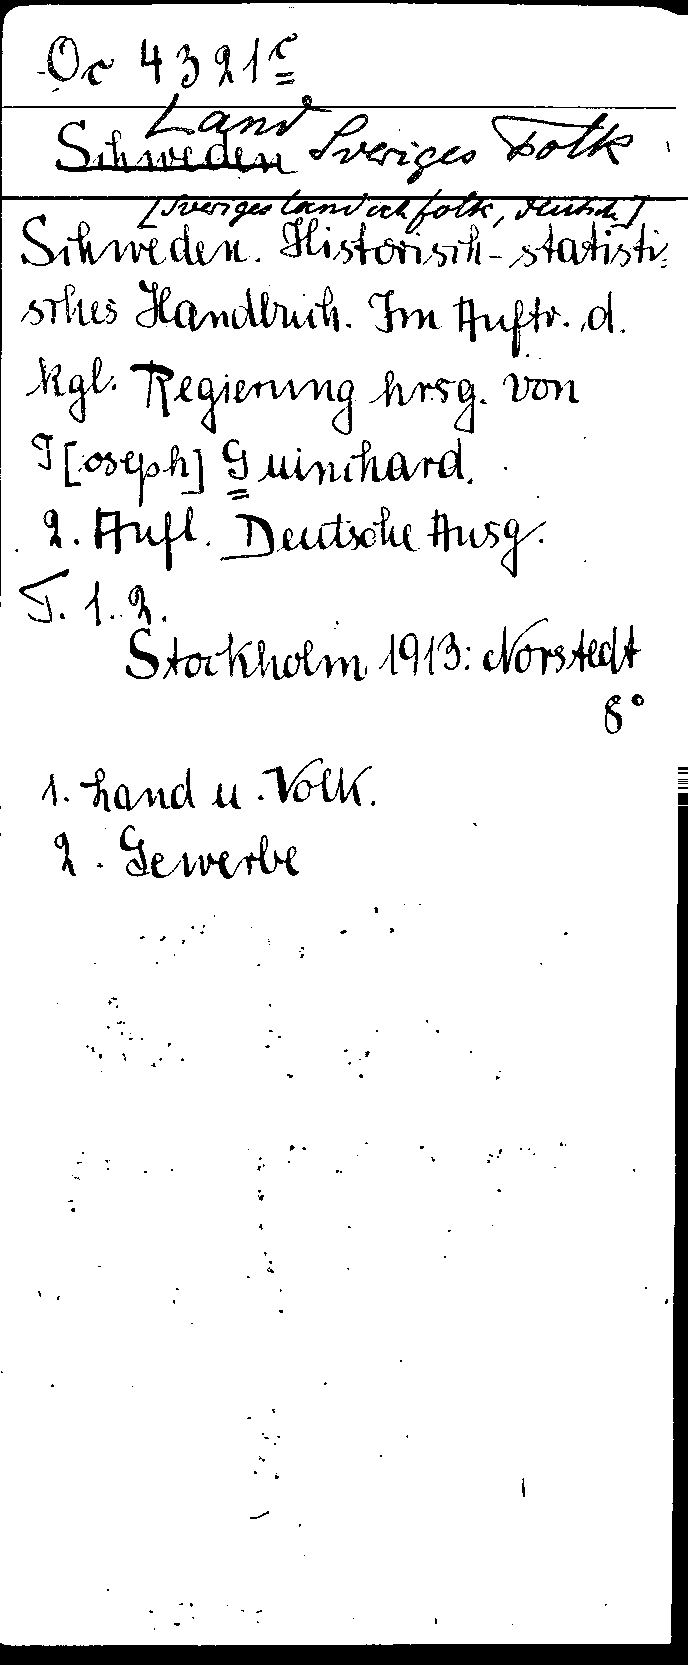 Oc 4321c
Land
Schweden Sveriges Folk
[Sveriges land och folk, deutsch]
Schweden. Historisch-statisti-
sches Handbuch. Im Auftr. d.
kgl. Regierung hrsg. von
J[oseph] Guinchard.
2. Aufl. Deutsche Ausg.
T. 1. 2.
Stockholm 1913: Norstedt
8°
1. Land u. Volk.
2. Gewerbe